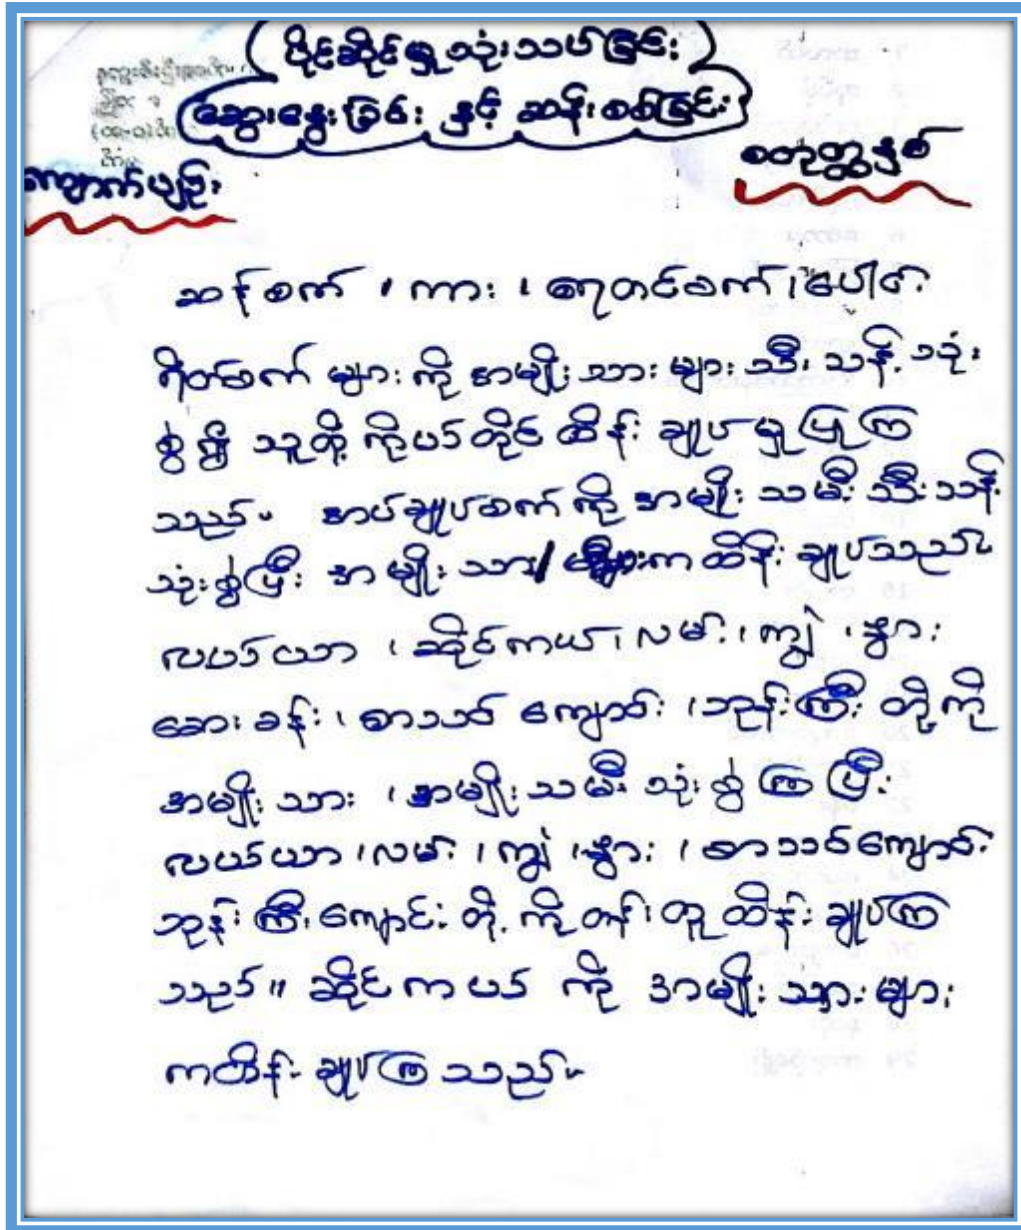 ပိုင်ဆိုင်မှုသုံးသပ်ခြင်း
ဆွေးနွေးခြင်း နှင့် ဆန်းစစ်ခြင်း
စတုတ္ထနှစ်
ကျောက်ပျဉ်း
ဆန်စက် ၊ ကား ၊ ရေတင်စက် ၊ ပေါင်း
ရိတ်စက် များ ကို အမျိုး သား များ သီး သန့် သုံး
စွဲ ၍ သူတို့ ကိုယ်တိုင် ထိန်း ချုပ် မှု ပြုကြ
သည်။ အပ်ချုပ်စက် ကို အမျိုး သမီး သီးသန့်
သုံးစွဲပြီး အမျိုး သား များက ထိန်း ချုပ်သည်။
လယ်ယာ ၊ ဆိုင်ကယ် ၊ လမ်း ၊ ကျွဲ ၊ နွား
ဆေး ခန်း ၊ စာသင် ကျောင်း ၊ ဘုန်းကြီး တို့ ကို
အမျိုး သား ၊ အမျိုး သမီး သုံး စွဲ ကြ ပြီး
လယ်ယာ ၊ လမ်း ၊ ကျွဲ ၊ နွား ၊ စာသင်ကျောင်း
ဘုန်း ကြီး ကျောင်း တို့ ကို တန်း တူ ထိန်း ချုပ်ကြ
သည်။ ဆိုင်ကယ် ကို အမျိုး သား များ
ကထိန်း ချုပ်ကြ သည်။